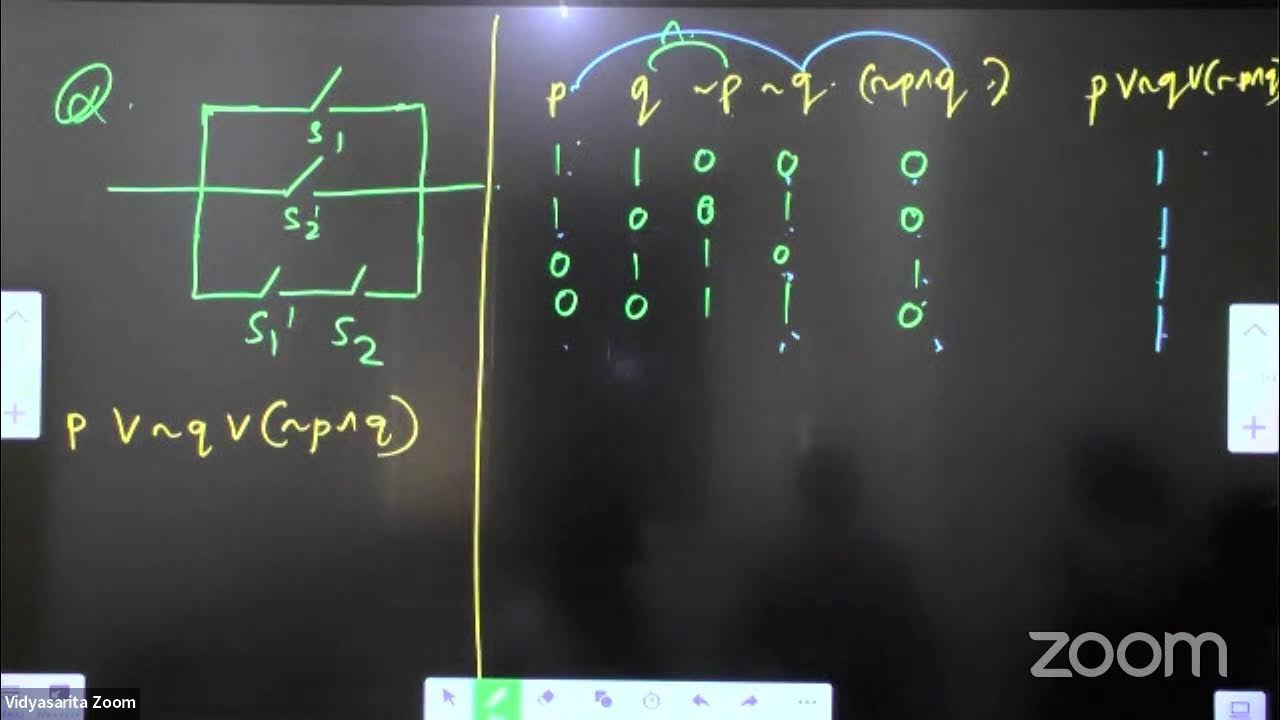 Q.
S1
S2'
S1' S2
p ∨ ~q ∨ (~p ∧ q)
∧
p q ~p ~q (~p ∧ q) p ∨ ~q ∨ (~p ∧ q)
1 1 0 0 0 1
1 0 0 1 0 1
0 1 1 0 1 1
0 0 1 1 0 1
zoom
Vidyasarita Zoom